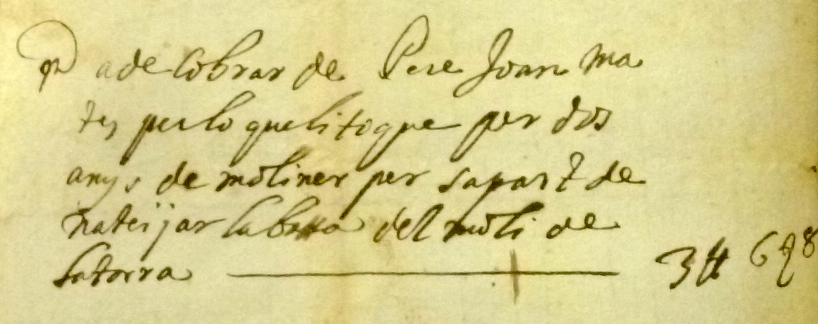 ade Cobrar de Pere Joan Ma
tes perlo quelitoque per dos
anys de moliner per sapart de
nateijar labassa del moli de
latorra 3 ₶ 6 ß 8